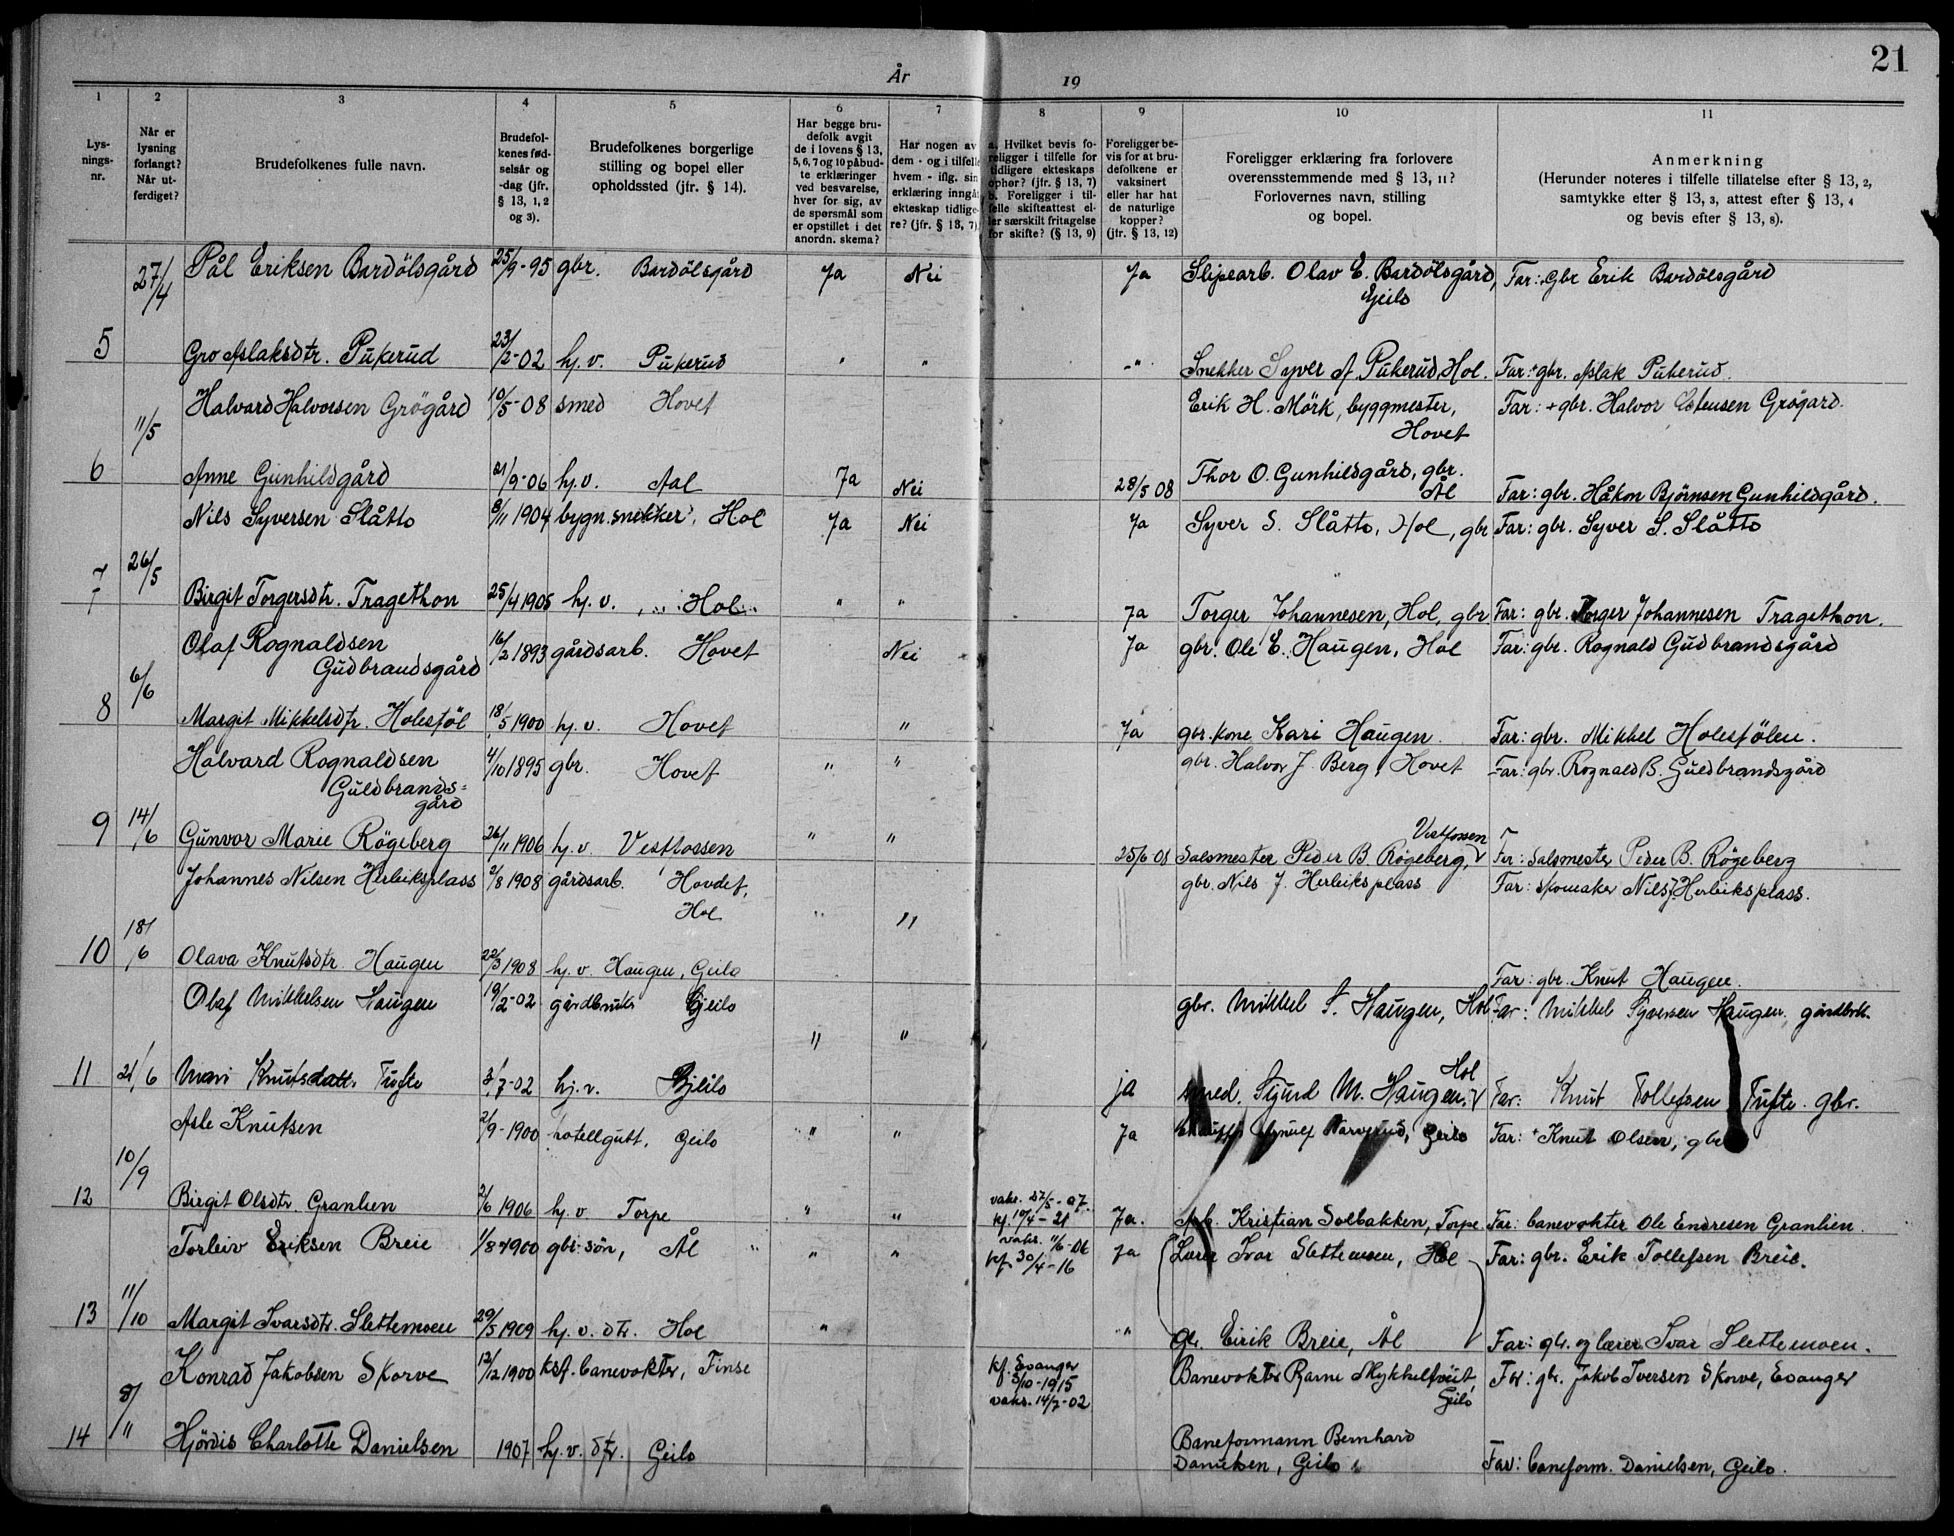 21
År
19
1 2 3 4 5 6 7 8 9 10 11
Lys-
nings-
nr.
Når er
lysning
forlangt?
Når ut-
ferdiget?
Brudefolkenes fulle navn.
Brudefol-
kenes fød-
selsår og
-dag (jfr.
§ 13, 1, 2
og 3).
Brudefolkenes borgerlige
stilling og bopel eller
opholdssted (jfr. § 14).
Har begge bru-
defolk avgit
de i lovens § 13,
5, 6, 7 og 10 påbud-
te erklæringer
ved besvarelse,
hver for sig, av
de spørsmål som
er opstillet i det
anordn. skema?
Har nogen av
dem - og i tilfelle
hvem - iflg. sin
erklæring inngåt
ekteskap tidlige-
re? (jfr. § 13, 7)
a. Hvilket bevis fo-
religger i tilfelle for
tidligere ekteskaps
ophør? (jfr. § 13, 7)
b. Foreligger i til-
felle skifteattest el-
ler særskilt fritagelse
for skifte? (§ 13, 9)
Foreligger be-
vis for at bru-
defolkene er
vaksinert
eller har hat
de naturlige
kopper?
(jfr. § 13, 12)
Foreligger erklæring fra forlovere
overensstemmende med § 13, 11?
Forlovernes navn, stilling
og bopel.
Anmerkning
(Herunder noteres i tilfelle tillatelse efter § 13, 2,
samtykke efter § 13, 3, attest efter § 13, 4
og bevis efter § 13, 8).
27/4 Pål Eriksen Bardölsgård 25/9-95 gbr. Bardölsgård Ja Nei Ja Slipearb. Olav E. Bardölsgård, Far: Gbr Erik Bardölsgård
Geilo
5 Gro Aslaksdtr. Pukerud 23/2-02 hj.v. Pukerud " " " Snekker Syver A. Pukerud Hol. Far: + gbr. Aslak Pukerud.
11/5 Halvard Halvorsen Grögård 10/5-08 smed Hovet Erik H. Mörk, byggmester, Far: + gbr. Halvor Grögard.
Hovet
6 Anne Gunhildgård 21/9-06 hj.v. Aal Ja Nei 28/5 08 Thor O. Gunhildgård, gbr. Far: gbr. Håkon Björnsen Gunhildgård.
Ål
Nils Syversen Slåtto 8/11 1904 bygn.snekker, Hol Ja Nei Ja Syver S. Slåtto, Hol, gbr Far: gbr. Syver S. Slåtto
26/5
7 Birgit Torgersdtr. Tragethon 25/4 1905 hj.v. Hol " " Ja Torger Johannesen, Hol, gbr Far: gbr. Torger Johannesen Tragethon.
Olaf Rognaldsen 16/2 1893 gårdsarb. Hovet Nei Ja gbr. Ole E. Haugen, Hol Far: gbr. Rognald Gudbrandsgård
Gudbrandsgård
6/6
8 Margit Mikkelsdtr. Holestöl 18/5 1900 hj.v. Hovet " Ja gbr.kone Kari Haugen. Far: gbr. Mikkel Holestölen.
Halvard Rognaldsen 4/10 1895 gbr. Hovet " " gbr. Halvor J. Berg, Hovet Far: gbr. Rognald B. Guldbrandsgård
Guldbrands=
gård
9 14/6 Gunvor Marie Rögeberg 26/11 1906 hj.v. Vestfossen " " 25/6 08 Salsmester Peder B. Rögeberg, Vestfossen Far: Salsmester Peder B. Rögeberg
Johannes Nilsen Herleiksplass 2/8 1908 gårdsarb. Hovdet, gbr. Nils J. Herleiksplass Far: skomaker Nils J. Herleiksplass.
Hol " "
18/6
10 Olava Knutsdtr. Haugen 22/3 1908 hj.v. Haugen, Geilo Far: gbr. Knut Haugen.
Olaf Mikkelsen Haugen 19/2-02 gårdbruk. Gjeilo gbr. Mikkel S. Haugen, Hol Far: Mikkel Syversen Haugen, gårdbrk.
" "
11 21/6 Mari Knutsdatt. Tufte 3/7-02 hj.v. Gjeilo ja smed. Sjurd M. Haugen. Hol Far: Knut Tollefsen Tufte gbr.
Asle Knutsen 2/9-1900 hotellgutt, Geilo " " Ja Narverud, Geilo Far: + Knut Olsen, gbr
10/9
12 Birgit Olsdtr. Granlien 2/6 1906 hj.v. Torpe " " vaks. 27/5-07. Kf. 10/4-21 Ja. Arb. Kristian Solbakken, Torpe Far: banevokter Ole Endresen Granlien.
Torleiv Eriksen Breie 1/8 1900 gbr. sön, Ål " " vaks. 11/6-06 Kf 30/4-16 Ja Lærer Ivar Slettemoen, Hol Far: gbr. Erik Tollefsen Breie.
11/10
13 Margit Ivarsdtr. Slettemoen 29/5 1909 hj.v. dtr. Hol " " Eirik Breie, Ål Far: gbr. og lærer Ivar Slettemoen.
Konrad Jakobsen Skorve 12/12 1900 banevokter, Finse Kf. Evanger 3/10-1915 vaks. 14/7-02 Banevokter Bjarne Mykkeltveit, Far: gbr. Jakob Iversen Skorve, Evanger
Geilo
8/11
14 Hjördis Charlotte Danielsen 1907 hj.v. dtr. Geilo Baneformann Bernhard
Danielsen, Geilo Far: baneform. Danielsen, Geilo.